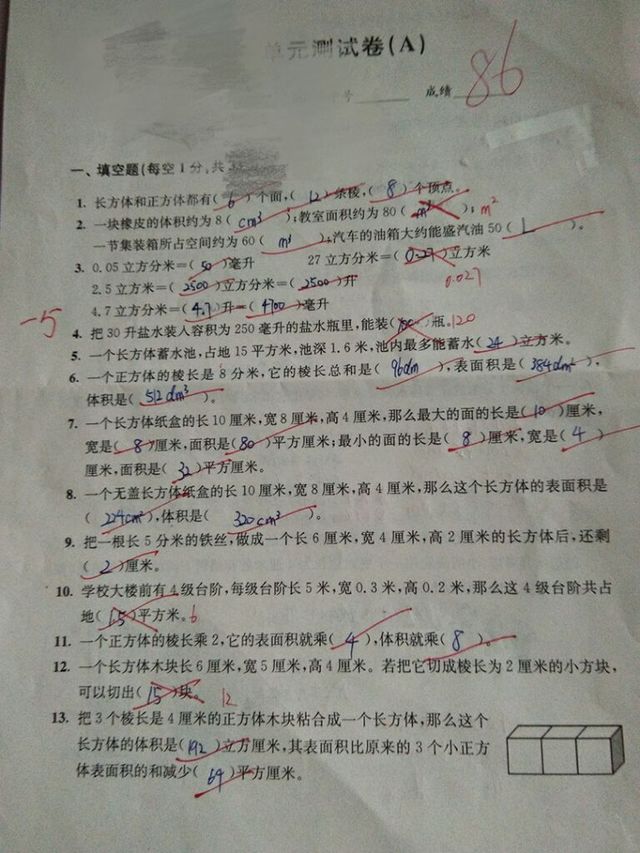 单元测试卷(A)
号 成绩 86
一、填空题(每空1分,共
1. 长方体和正方体都有(6)个面,(12)条棱,(8)个顶点。
2. 一块橡皮的体积约为8(cm³);教室面积约为80(m³); m²
一节集装箱所占空间约为60(m³);汽车的油箱大约能盛汽油50(L)。
3. 0.05立方分米=(50)毫升 27立方分米=(0.27)立方米
2.5立方米=(2500)立方分米=(2500)升 0.027
4.7立方分米=(4.7)升=(4700)毫升
-5
4. 把30升盐水装入容积为250毫升的盐水瓶里,能装( )瓶。120
5. 一个长方体蓄水池,占地15平方米,池深1.6米,池内最多能蓄水(24)立方米。
6. 一个正方体的棱长是8分米,它的棱长总和是(96dm),表面积是(384dm²),
体积是(512dm³)。
7. 一个长方体纸盒的长10厘米,宽8厘米,高4厘米,那么最大的面的长是(10)厘米,
宽是(8)厘米,面积是(80)平方厘米;最小的面的长是(8)厘米,宽是(4)
厘米,面积是(32)平方厘米。
8. 一个无盖长方体纸盒的长10厘米,宽8厘米,高4厘米,那么这个长方体的表面积是
(224cm²),体积是(320cm³)。
9. 把一根长5分米的铁丝,做成一个长6厘米,宽4厘米,高2厘米的长方体后,还剩
(2)厘米。
10. 学校大楼前有4级台阶,每级台阶长5米,宽0.3米,高0.2米,那么这4级台阶共占
地(1.5)平方米。6
11. 一个正方体的棱长乘2,它的表面积就乘(4),体积就乘(8)。
12. 一个长方体木块长6厘米,宽5厘米,高4厘米。若把它切成棱长为2厘米的小方块,
可以切出(15)块。12
13. 把3个棱长是4厘米的正方体木块粘合成一个长方体,那么这个
长方体的体积是(192)立方厘米,其表面积比原来的3个小正方
体表面积的和减少(64)平方厘米。